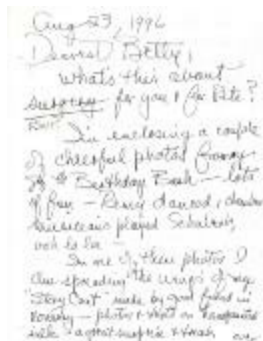 Aug 23, 1996
Dearest Betty,
What's this about
surgery for you & for Pete?
I'm enclosing a couple
of cheerful photos from my
Birthday Bash — lots
of fun — Remy danced, chamber
musicians played Schubert,
ooh la la —
In one of these photos I
am spreading the wings of my
"Story Coat" made by good friend in
— photos & on
silk — a great surprise &
over